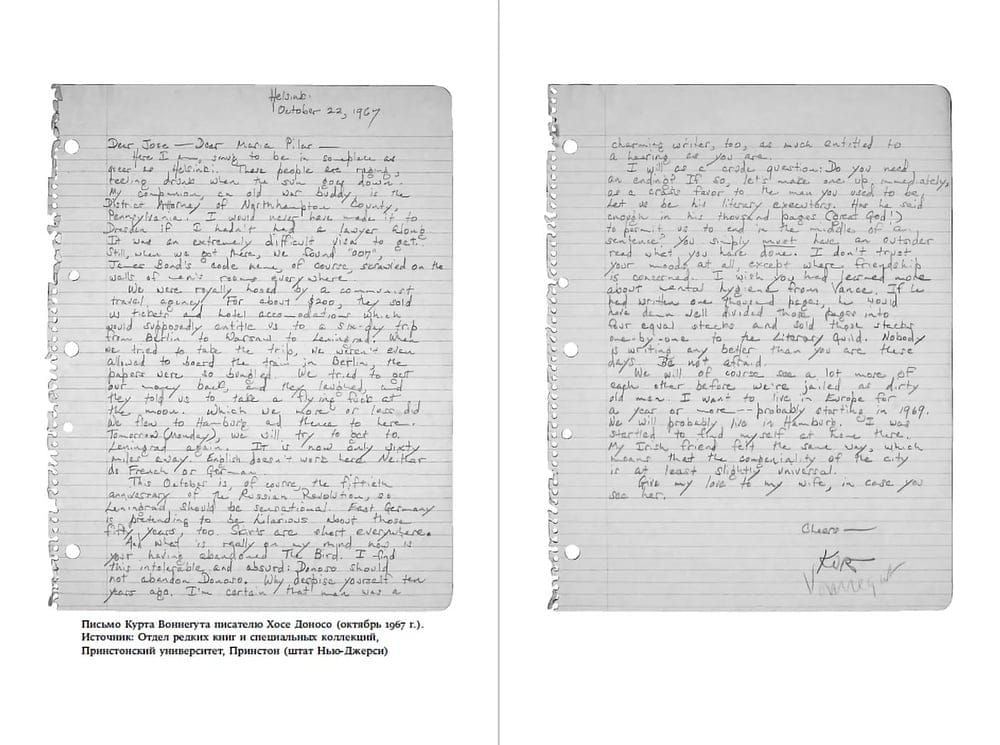 Helsinki
October 22, 1967
Dear Jose — Dear Maria Pilar —
Here I am, smug to be in someplace as
queer as Helsinki. These people are raging,
reeling drunk when the sun goes down.
My companion, an old war buddy, is the
District Attorney of Northhampton County,
Pennsylvania. I would never have made it to
Dresden if I hadn't had a lawyer along.
It was an extremely difficult visa to get.
Still, when we got there, we found "007",
James Bond's code name, of course, scrawled on the
walls of men's rooms everywhere.
We were royally hosed by a communist
travel agency. For about $200, they sold
us tickets and hotel accomodations which
would supposedly entitle us to a six-day trip
from Berlin to Warsaw to Leningrad. When
we tried to take the trip, we weren't even
allowed to board the train in Berlin, the
papers were so bungled. We tried to get
our money back, and they laughed, and
they told us to take a flying fuck at
the moon. Which we more or less did
We flew to Hamburg and thence to here.
Tomorrow (Monday), we will try to get to
Leningrad again. It is now only sixty
miles away. English doesn't work here. Neither
do French or German.
This October is, of course, the fiftieth
anniversary of the Russian Revolution, so
Leningrad should be sensational. East Germany
is pretending to be hilarious about those
fifty years, too. Skirts are short everywhere.
And what is really on my mind now is
your having abandoned The Bird. I find
this intolerable and absurd: Donoso should
not abandon Donoso. Why despise yourself ten
years ago. I'm certain that man was a
charming writer, too, as much entitled to
a hearing as you are.
I will as a crude question: Do you need
an ending? If so, let's make one up, immediately,
as a crass favor to the man you used to be.
Let us be his literary executors. Has he said
enough in his thousand pages (Great God!)
to permit us to end in the middles of an
sentence? You simply must have an outsider
read what you have done. I don't trust
your moods at all, except where friendship
is concerned. I wish you had learned more
about mental hygiene from Vance. If he
had written one thousand pages, he would
have damn well divided those pages into
four equal stacks and sold those stacks
one-by-one to the Literary Guild. Nobody
is writing any better than you are these
days. Be not afraid.
We will of course see a lot more of
each other before we're jailed as dirty
old men. I want to live in Europe for
a year or more -- probably starting in 1969.
We will probably live in Hamburg. I was
startled to find myself at home there.
My Irish friend felt the same way, which
means that the congeniality of the city
is at least slightly universal.
Give my love to my wife, in case you
see her.
Cheers —
Kurt
Vonnegut
Письмо Курта Воннегута писателю Хосе Доносо (октябрь 1967 г.).
Источник: Отдел редких книг и специальных коллекций,
Принстонский университет, Принстон (штат Нью-Джерси)